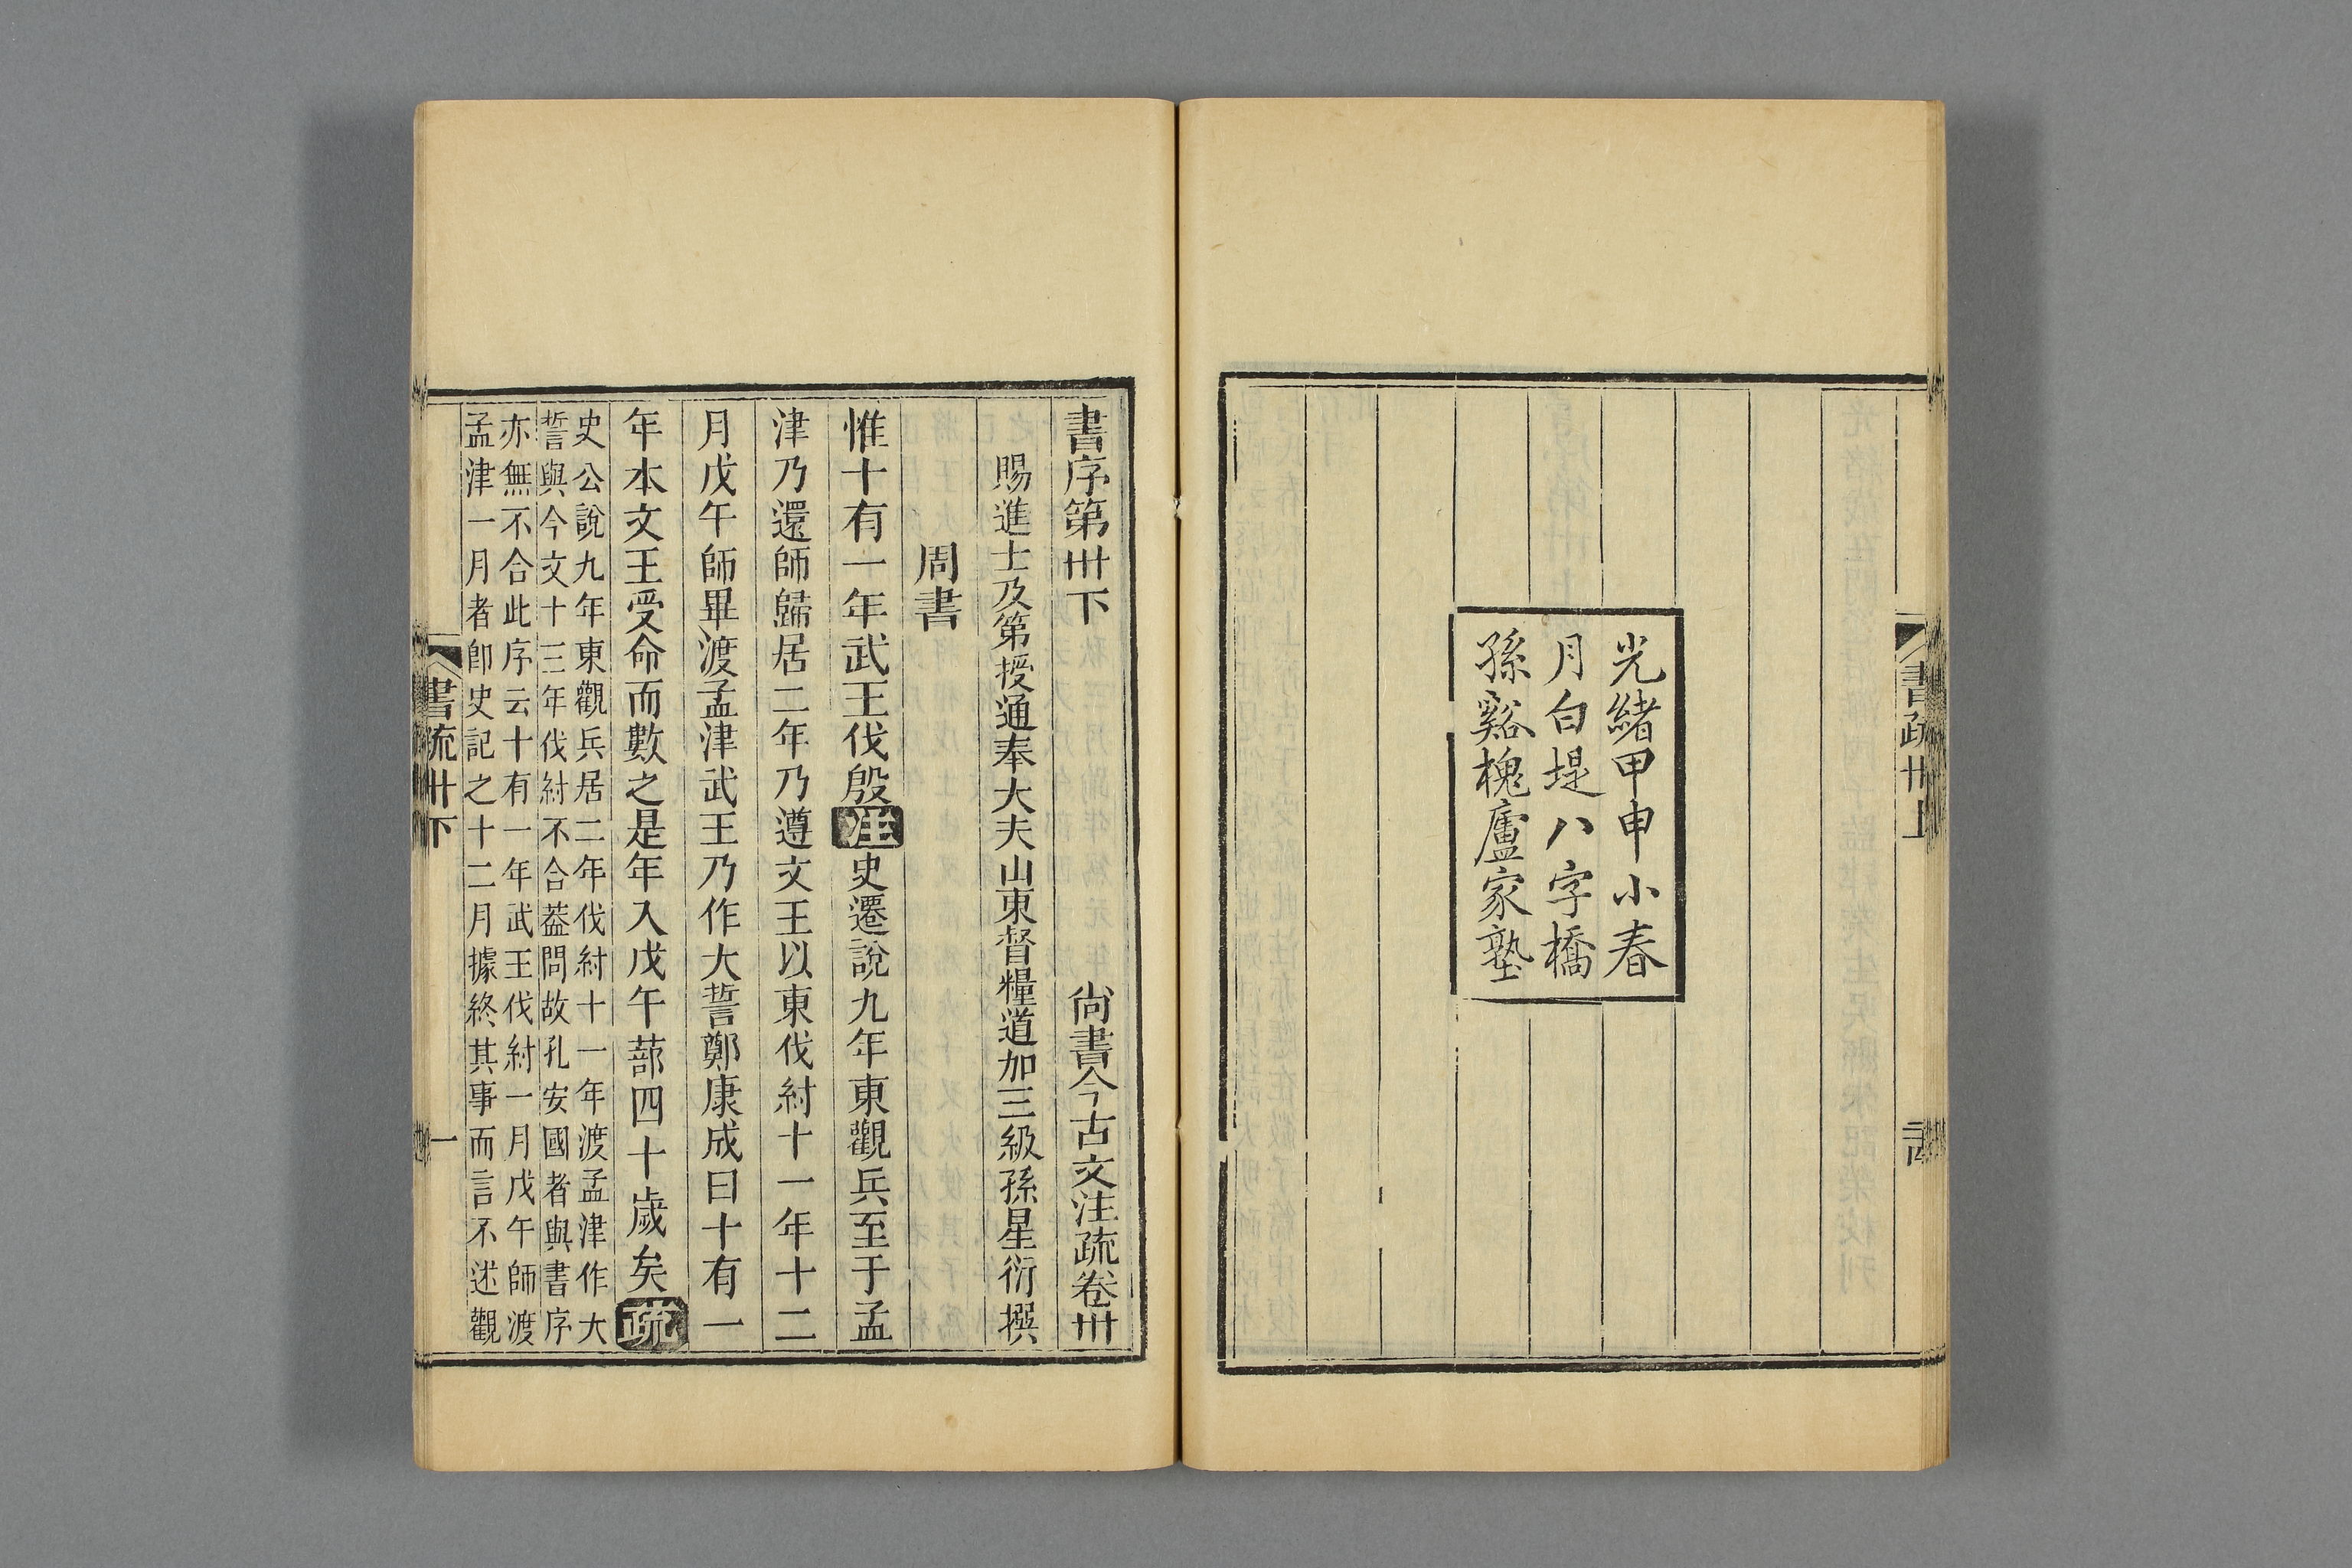 光緒甲申小春
月白堤八字橋
孫谿槐廬家塾
書疏卅上
書序第卅下
尚書今古文注疏卷卅
賜進士及第授通奉大夫山東督糧道加三級孫星衍撰
周書
惟十有一年武王伐殷注史遷說九年東觀兵至于孟
津乃還師歸居二年乃遵文王以東伐紂十一年十二
月戊午師畢渡孟津武王乃作大誓鄭康成曰十有一
年本文王受命而數之是年入戊午蔀四十歲矣疏
史公說九年東觀兵居二年伐紂十一年渡孟津作大
誓與今文十三年伐紂不合葢問故孔安國者與書序
亦無不合此序云十有一年武王伐紂一月戊午師渡
孟津一月者卽史記之十二月據終其事而言不述觀
書疏卅下
一